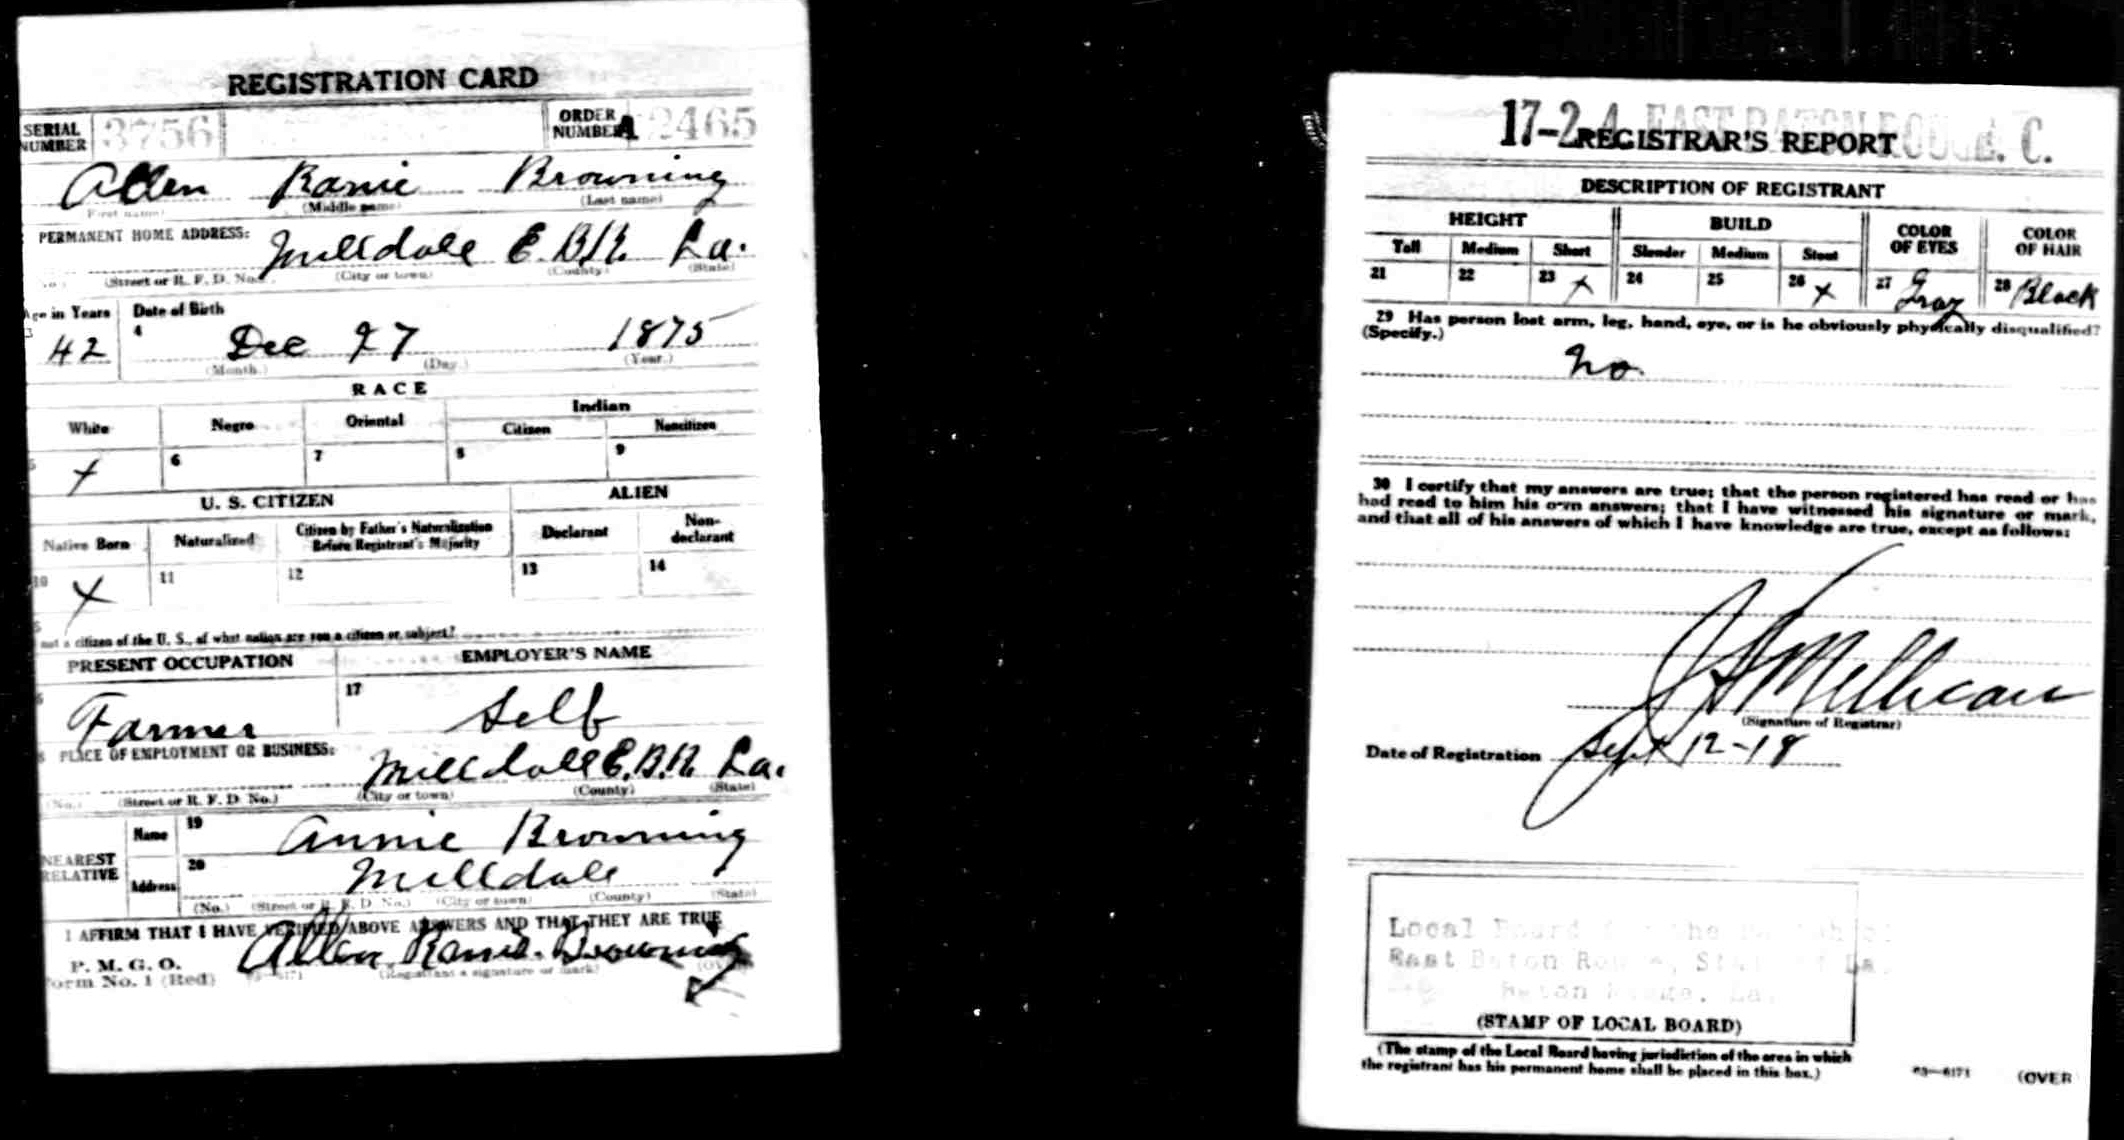 REGISTRATION CARD
SERIAL NUMBER 3756 ORDER NUMBER A 2465
Allen Ranie Browning
(First name) (Middle name) (Last name)
PERMANENT HOME ADDRESS:
Milldale E.B.R. La.
(No.) (Street or R. F. D. No.) (City or town) (County) (State)
Age in Years Date of Birth
3 4
42 Dec 27 1875
(Month.) (Day.) (Year.)
RACE
White Negro Oriental Indian
Citizen Noncitizen
5 6 7 8 9
X
U. S. CITIZEN ALIEN
Native Born Naturalized Citizen by Father's Naturalization Before Registrant's Majority Declarant Non-declarant
10 11 12 13 14
X
not a citizen of the U. S., of what nation are you a citizen or subject?
PRESENT OCCUPATION EMPLOYER'S NAME
17
Farmer Self
PLACE OF EMPLOYMENT OR BUSINESS:
Milldale E.B.R. La.
(No.) (Street or R. F. D. No.) (City or town) (County) (State)
NEAREST RELATIVE
Name 19 Annie Browning
Address 20 Milldale
(No.) (Street or R. F. D. No.) (City or town) (County) (State)
I AFFIRM THAT I HAVE VERIFIED ABOVE ANSWERS AND THAT THEY ARE TRUE
P. M. G. O.
Form No. 1 (Red) Allen Ranie Browning
(Registrant's signature or mark) (OVER)
17-2-4 EAST BATON ROUGE. C.
REGISTRAR'S REPORT
DESCRIPTION OF REGISTRANT
HEIGHT BUILD COLOR OF EYES COLOR OF HAIR
Tall Medium Short Slender Medium Stout
21 22 23 X 24 25 26 X 27 Gray 28 Black
29 Has person lost arm, leg, hand, eye, or is he obviously physically disqualified?
(Specify.)
No
30 I certify that my answers are true; that the person registered has read or has
had read to him his own answers; that I have witnessed his signature or mark,
and that all of his answers of which I have knowledge are true, except as follows:
(Signature of Registrar)
Date of Registration Sept 12-18
Local Board for the Parish of
East Baton Rouge, State of La.
Baton Rouge, La.
(STAMP OF LOCAL BOARD)
(The stamp of the Local Board having jurisdiction of the area in which
the registrant has his permanent home shall be placed in this box.)
03—6171 (OVER